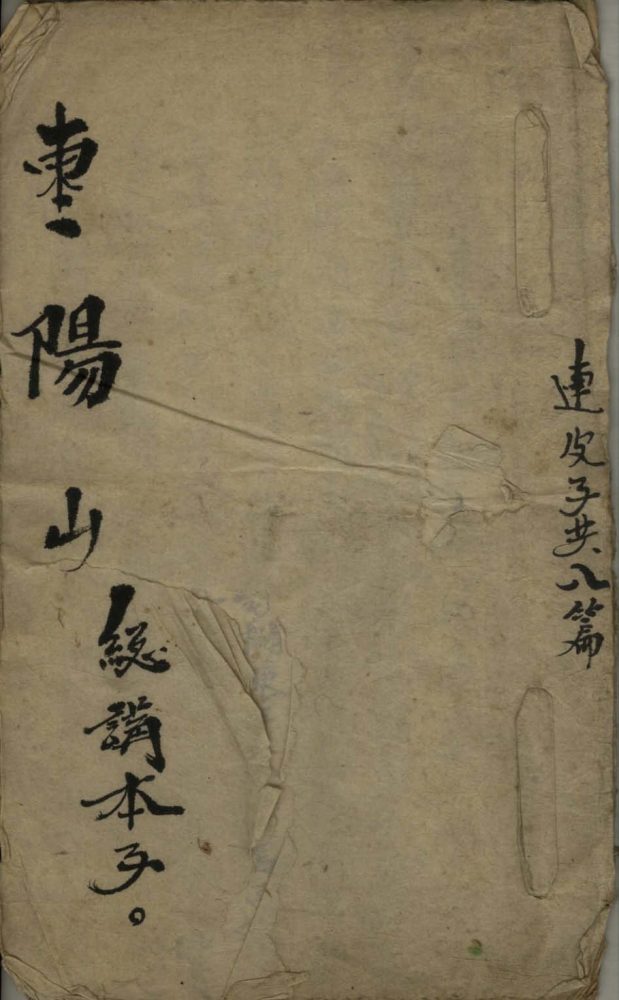 連皮子共八篇
枣陽山
總講本子。